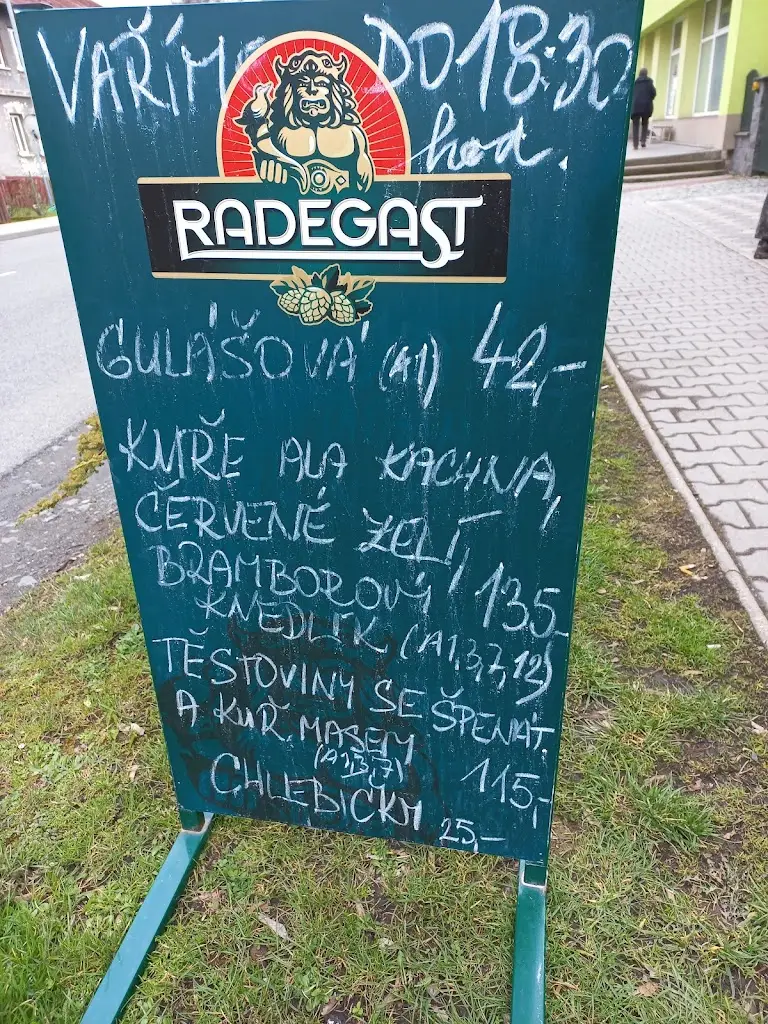 VAŘÍME DO 18:30
hod.
RADEGAST
GULÁŠOVÁ (A1) 42,-
KUŘE ALA KACHNA,
ČERVENÉ ZELÍ,
BRAMBOROVÝ 135,-
KNEDLÍK (A1,3,7,12)
TĚSTOVINY SE ŠPENÁT.
A KUŘ. MASEM
(A1,3,7) 115,-
CHLEBÍČKY 25,-